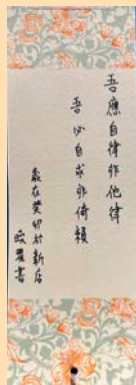 吾應自律非他律
吾必自求非倚賴
歲在癸卯於新店